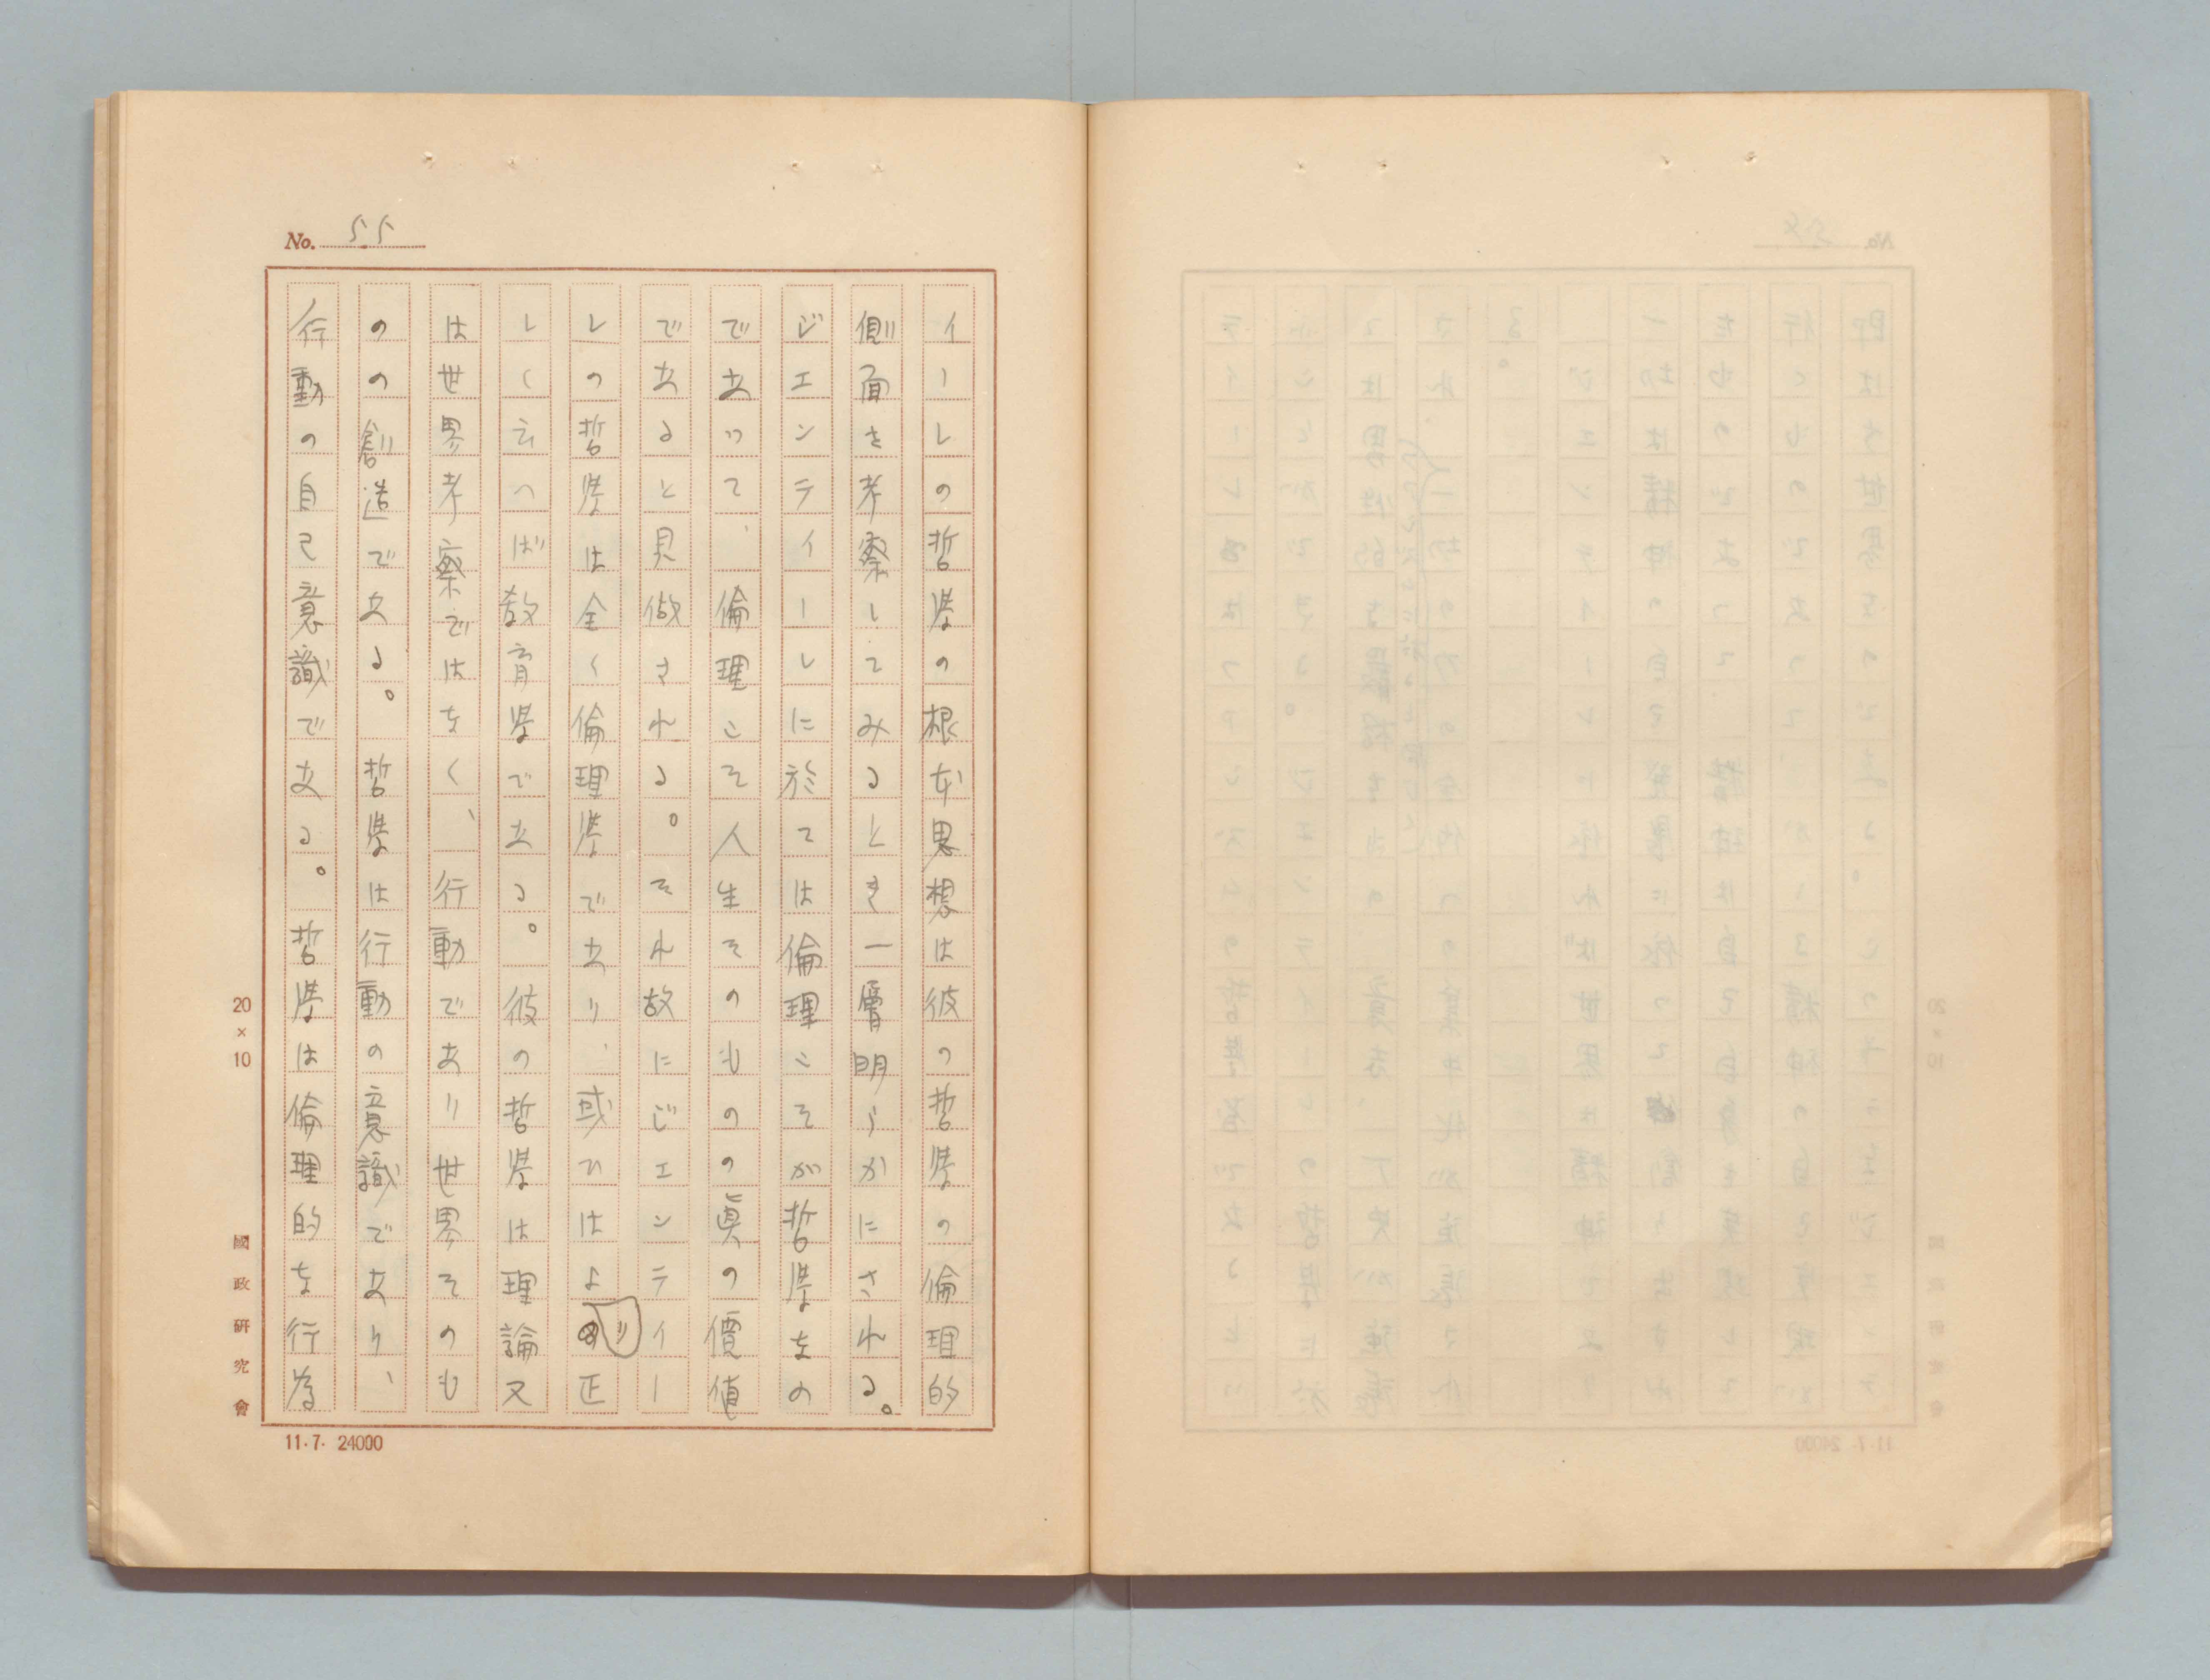 No. 55
イーレの哲學の根本思想は彼の哲學の倫理的
側面を考察してみるとき一層明らかにされる。
ジエンティーレに於ては倫理こそが哲學なの
であって、倫理こそ人生そのものの眞の價値
であると見做される。それ故にジェンティー
レの哲學は全く倫理學であり、或ひはより正
しく云へば教育學である。彼の哲學は理論又
は世界考察ではなく、行動であり世界そのも
のの創造である。哲學は行動の意識であり、
行動の自己意識である。哲學は倫理的な行為
20×10
國政研究會
11.7. 24000